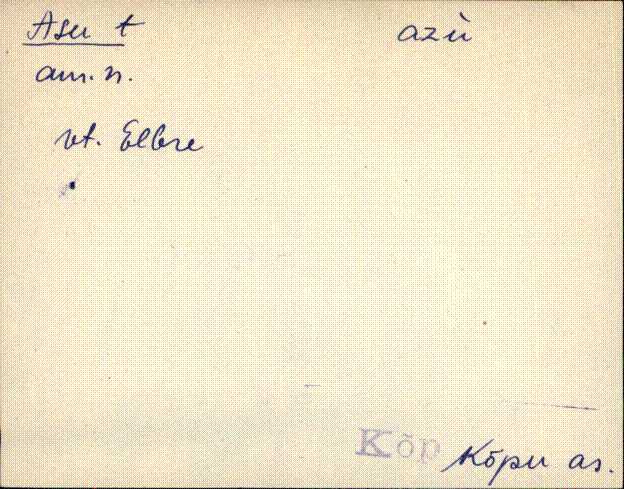 Asu t azù
am. n.
vt. Elbre
Kõp Kõpu as.